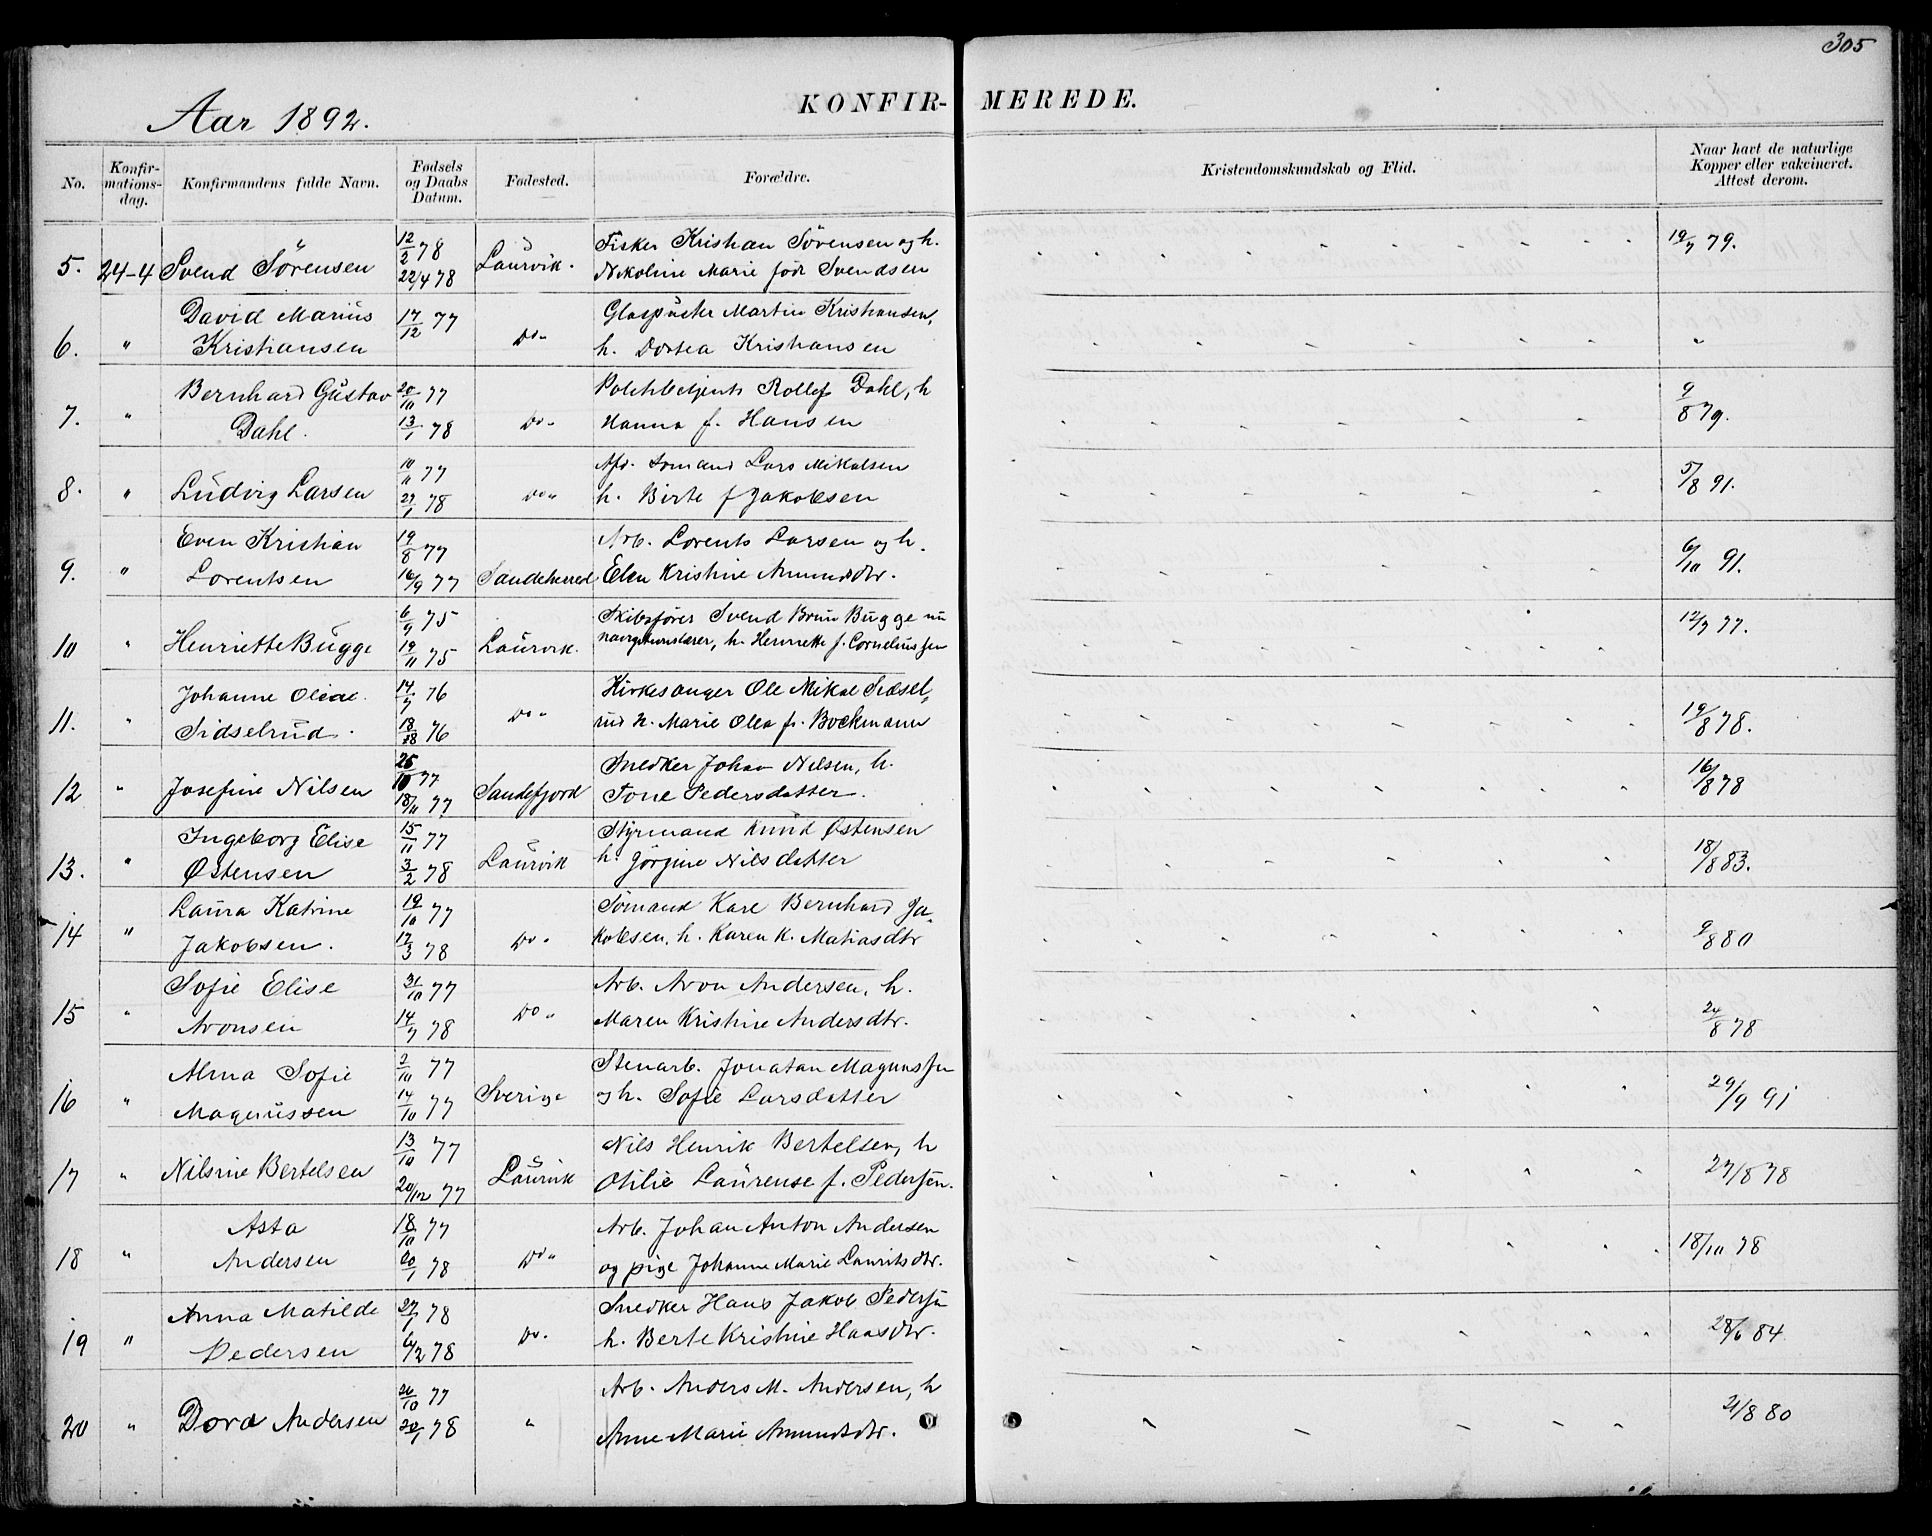 305
Aar 1892.
KONFIR- MEREDE.
No.
Konfir-
mations-
dag.
Konfirmandens fulde Navn.
Fødsels
og Daabs
Datum.
Fødested.
Forældre.
Kristendomskundskab og Flid.
Naar havt de naturlige
Kopper eller vakcineret.
Attest derom.
5. 24-4 Svend Sörensen 12/2 78 22/4 78 Laurvik.
Fisker Kristian Sörensen og h.
Nikoline Marie födt Svendsen
19/7 79.
6. " David Marius
Kristiansen
17/12 77 Do "
Glaspüster Martin Kristiansen,
h. Dortea Kristiansen
"
7. " Bernhard Gustav
Dahl.
20/10 77
13/1 78 Do "
Politibetjent Rollef Dahl, h
Hanna f. Hansen
9/8 79.
8. " Ludvig Larsen
10/11 77
27/1 78 Do "
Afd. Sömand Lars Mikalsen
h. Birte f Jakobsen
5/8 91.
9. " Even Kristian
Lorentsen
19/8 77
16/9 77 Sandeherred
Arb. Lorents Larsen og h.
Elen Kristine Amundsdtr.
6/10 91.
10 " Henriette Bugge
6/9 75
19/11 75 Laurvik.
Skibsförer Svend Brun Bugge nu
navigationslærer, h. Henriette f. Corneliussen
12/7 77.
11. " Johanne Oleae
Sidselrud.
14/7 76
18/8 76 Do "
Kirkesanger Ole Mikal Sidsel-
rud h. Marie Olea f. Bockmann
19/8 78.
12 " Josefine Nilsen
25/10 77
18/11 77 Sandefjord
Snedker Johan Nilsen, h.
Tone Pedersdatter.
16/8 78
13. " Ingeborg Elise
Østensen
15/11 77
3/2 78 Laurvik
Styrmand Knud Østensen
h. Jörgine Nilsdatter
18/8 83.
14 " Laura Katrine
Jakobsen.
19/10 77
17/3 78 Do "
Sömand Karl Bernhard Ja-
kobsen, h. Karen K. Matiasdtr
9/8 80
15 " Sofie Elise
Aronsen
31/10 77
14/7 78 Do "
Arb. Aron Andersen, h.
Maren Kristine Andersdtr.
24/8 78
16 " Alma Sofie
Magnussen
2/10 77
14/10 77 Sverige
Stenarb. Jonatan Magnussen
og h. Sofie Larsdatter
29/9 91
17 " Nilsine Bertelsen
13/10 77
20/12 77 Laurvik
Nils Henrik Bertelsen, h
Otilie Laurense f. Pedersen.
27/8 78
18 " Asta
Andersen
18/10 77
20/1 78 Do "
Arb. Johan Anton Andersen
og pige Johanne Marie Lauritsdtr.
18/10 78
19 " Anna Matilde
Pedersen
27/1 78
6/2 78 Do.
Snedker Hans Jakob Pedersen
h. Berte Kristine Hansdtr.
28/6 84.
20 " Dora Andersen
26/10 77
20/1 78 "
Arb. Anders M. Andersen, h
Anne Marie Amundsdtr.
21/8 80